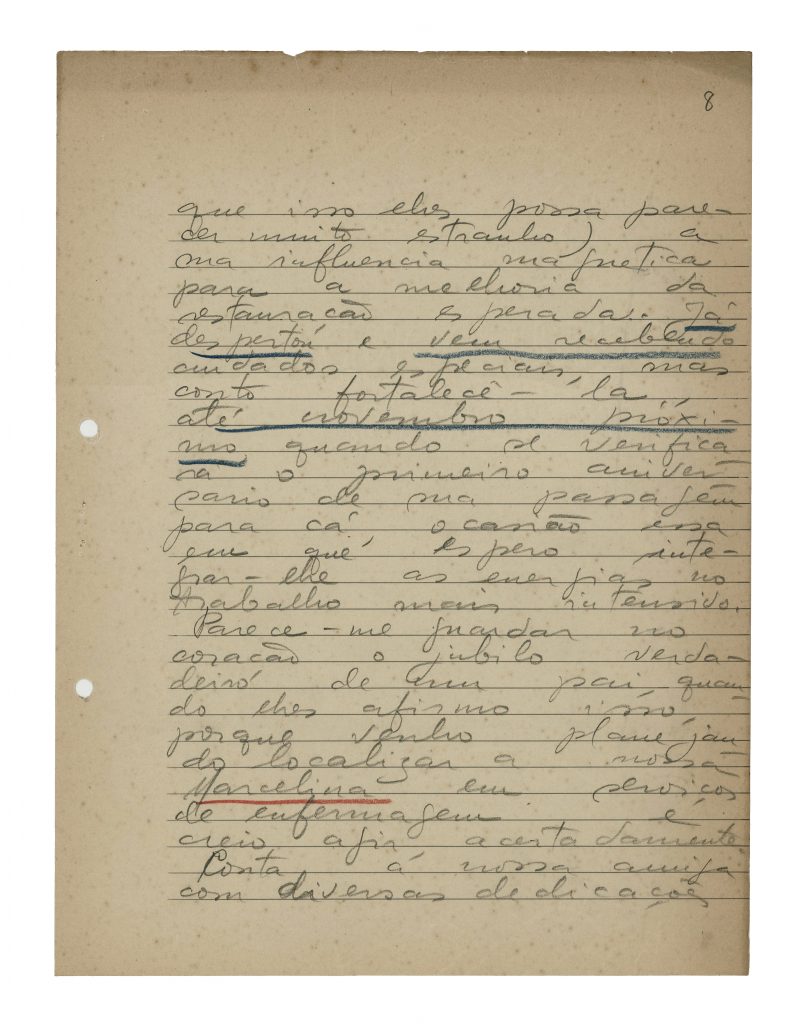 8
que isso lhes possa pare-
cer muito estranho) a
sua influencia magnetica
para a melhoria da
restauração esperada. Já
despertou e vem recebendo
cuidados especiais, mas
conto fortalecê-la
até novembro próxi-
mo quando se verifica
rá o primeiro aniver
sario de sua passagem
para cá ocasião essa
em que espero inte-
grar-lhe as energias no
trabalho mais intensivo.
Parece-me guardar no
coracão o jubilo verda-
deiro de um pai quan
do lhes afirmo isso,
porque venho planejan
do localizar a nossa
Marcelina em serviços
de enfermagem e
creio agir acertadamente.
Conta á nossa amiga
com diversas dedicações